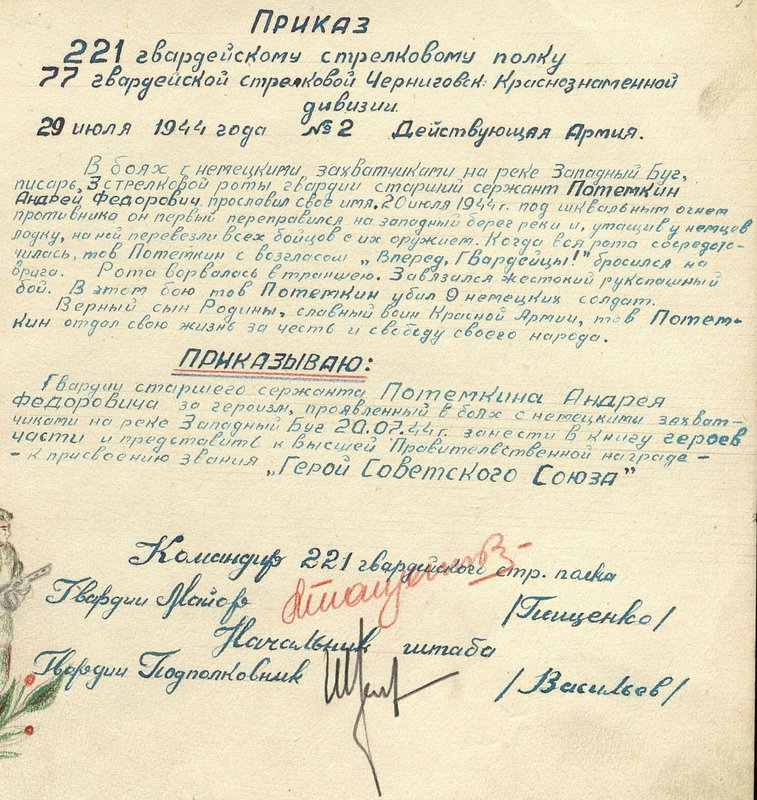 Приказ
221 гвардейскому стрелковому полку
77 гвардейской стрелковой Черниговск. Краснознаменной
дивизии
29 июля 1944 года №2 Действующая Армия.
В боях с немецкими захватчиками на реке Западный Буг,
писарь 3 стрелковой роты гвардии старший сержант Потемкин
Андрей Федорович прославил свое имя. 20 июля 1944 г. под шквальным огнем
противника он первый переправился на западный берег реки и, утащив у немцев
лодку, на ней перевезли всех бойцов с их оружием. Когда вся рота сосредото-
чилась, тов Потемкин с возгласом „Вперед, Гвардейцы!" бросился на
врага. Рота ворвалась в траншею. Завязался жестокий рукопашный
бой. В этом бою тов Потемкин убил 9 немецких солдат.
Верный сын Родины, славный воин Красной Армии, тов Потем-
кин отдал свою жизнь за честь и свободу своего народа.
ПРИКАЗЫВАЮ:
Гвардии старшего сержанта Потемкина Андрея
Федоровича за героизм, проявленный в боях с немецкими захват-
чиками на реке Западный Буг 20.07.44г. занести в книгу героев
части и представить к высшей Правителвственной награде -
- к присвоению звания „Герой Советского Союза"
Командир 221 гвардейского стр. полка
Гвардии Майор /Пищенко/
Начальник штаба
Гвардии Подполковник /Васильев/